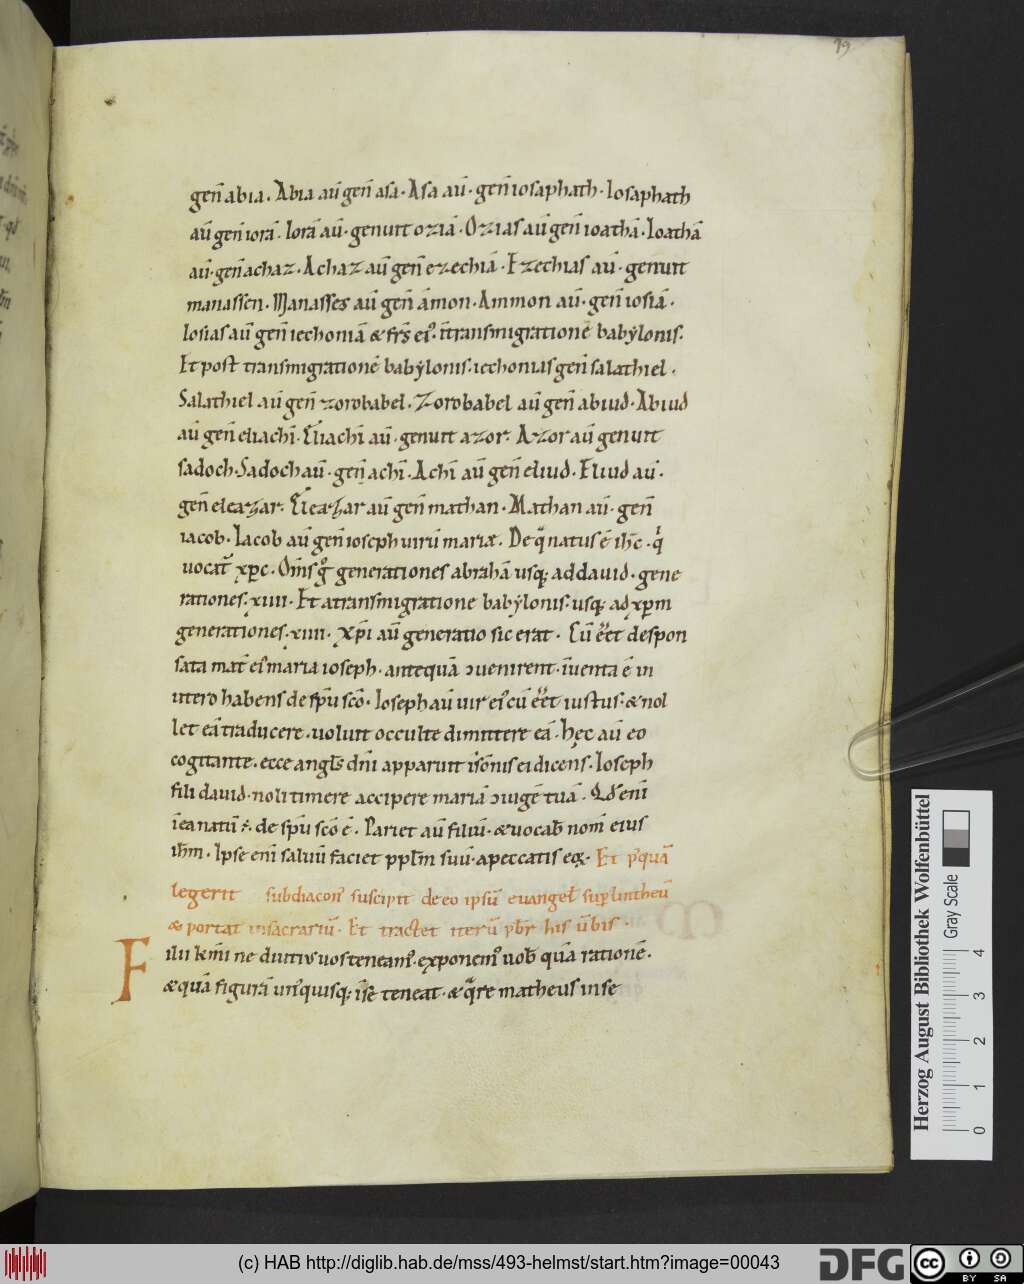 19
geñ abia. Abia aū geñ asa. Asa aū. geñ iosaphath. Iosaphath
aū geñ iorā. Iorā aū. genuit oziā. Ozias aū geñ ioathā. Ioathā
aū. geñ achaz. Achaz aū geñ ezechiā. Ezechias aū. genuit
manassen. Manasses aū geñ āmon. Ammon aū. geñ iosiā.
Iosias aū geñ iechoniā & fr̄s ei᾽. īn transmigrationē babẏlonis.
Et post transmigrationē babẏlonis. iechonias geñ salathiel.
Salathiel aū geñ zorobabel. Zorobabel aū geñ abiud. Abiud
aū geñ eliachī. Eliachī aū. genuit azor. Azor aū genuit
sadoch. Sadoch aū. geñ achī. Achī aū geñ eliud. Eliud aū.
geñ eleazar. Eleazar aū geñ mathan. Mathan aū. geñ
iacob. Iacob aū geñ ioseph uirū mariæ. De q̄ natus ē ih̄c. qͥ
uocat᷑ xp̄c. Om̄s gͦ generationes abrahā usq; ad dauid. gene
rationes. xiiii. Et a transmigratione babẏlonis. usq; ad xp̄m
generationes. xiiii. Xp̄i aū generatio sic erat. Cū eēt despon
sata mat᷑ ei᾽ maria ioseph. antequā ɔuenirent. īuenta ē in
utero habens de sp̄u scō. Ioseph aū uir ei᾽ cū eēt iustus. & nol
let eā traducere. uoluit occulte dimittere eā. hęc aū eo
cogitante. ecce angl̄s dn̄i apparuit ī sōnis ei dicens. Ioseph
fili dauid. noli timere accipere mariā ɔiugē tuā. Qd̄ enī
ī ea natū ē. de sp̄u scō ē. Pariet aū filiū. & uocab̄ nom̄ eius
ih̄m. Ipse enī saluū faciet ppl̄m suū. a peccatis eoꝝ. Et p᾽quā
legerit subdiacon᾽ suscipit de eo ipsū euangel̄ sup̄ lintheū
& portat in sacrariū. Et tractet iterū pb̄r his ūbis.
Filii km̄i ne diutius uos teneam᾽. exponem᾽ uob̄ quā rationē.
& quā figurā un᾽quisq; ī sē teneat. & qͣre matheus in se
Herzog August Bibliothek Wolfenbüttel
Gray Scale
0 1 2 3 4
(c) HAB http://diglib.hab.de/mss/493-helmst/start.htm?image=00043
DFG
cc BY SA